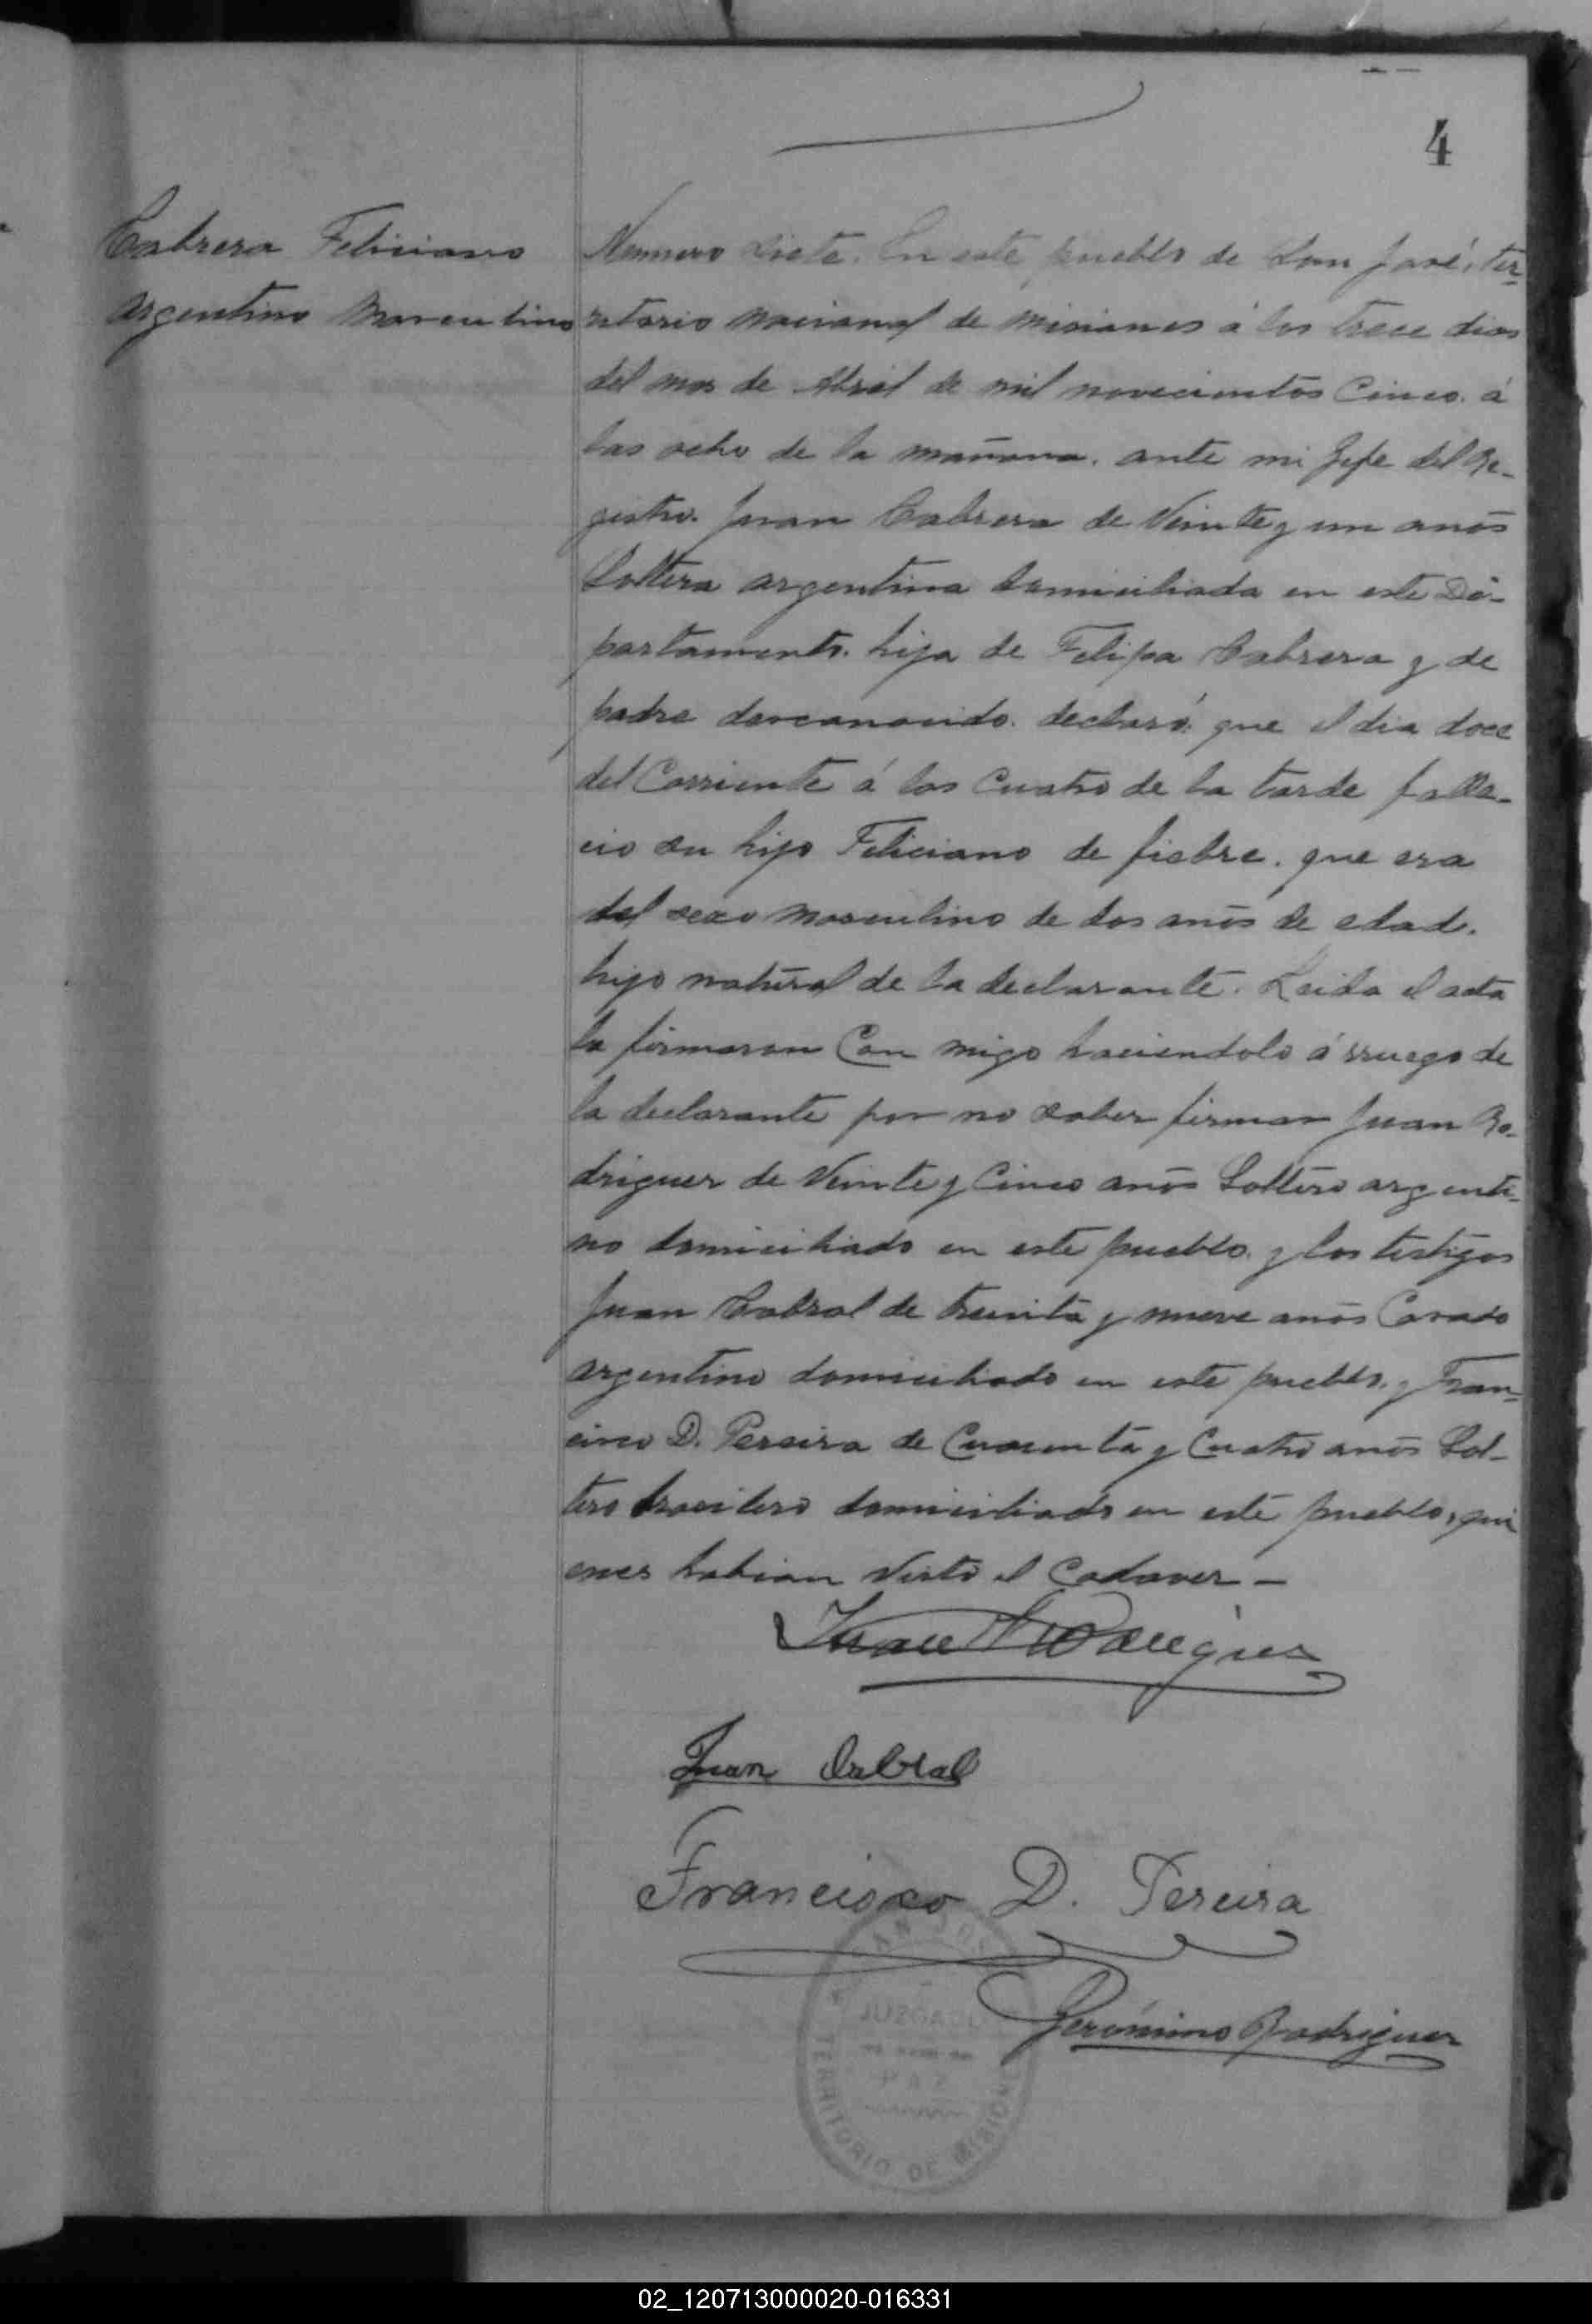 4
Cabrera Feliciano
argentino masculino
Numero siete. En este pueblo de San José, ter-
ritorio nacional de Misiones á los trece dias
del mes de Abril de mil novecientos Cinco. á
las ocho de la mañana. ante mi Jefe del Re-
gistro. Juan Cabrera de Veinte y un anõs
Soltera argentina domiciliada en este De-
partamento. hija de Felipa Cabrera y de
padre desconosido. declaró: que el dia doce
del Corriente á las Cuatro de la tarde falle-
cio su hijo Feliciano de fiebre. que era
del sexo masculino de dos anõs de edad.
hijo natural de la declarante. Leida el acta
la firmaron Con migo haciendolo á rruego de
la declarante por no saber firmar Juan Ro-
driguez de Veinte y Cinco anõs Soltero argenti-
no domiciliado en este pueblo. y los testigos
Juan Cabral de treinta y nueve anõs Casado
argentino domiciliado en este pueblo. y Fran-
cisco D. Pereira de Cuarenta y Cuatro anõs Sol-
tero brasilero domiciliado en este pueblo, qui
enes habian Visto el Cadaver -
Juan Rodriguez
Juan Cabral
Francisco D. Pereira
Gerónimo Rodriguez
SAN JOSE
JUZGADO
DE
PAZ
TERRITORIO DE MISIONES
02_120713000020-016331